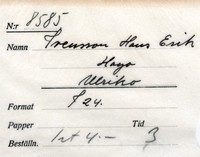 N:r 8585
Namn Svensson Hans Erik
Haga
Ulrika
Format F 24.
Papper Tid
Beställn. 1st 4.- 3